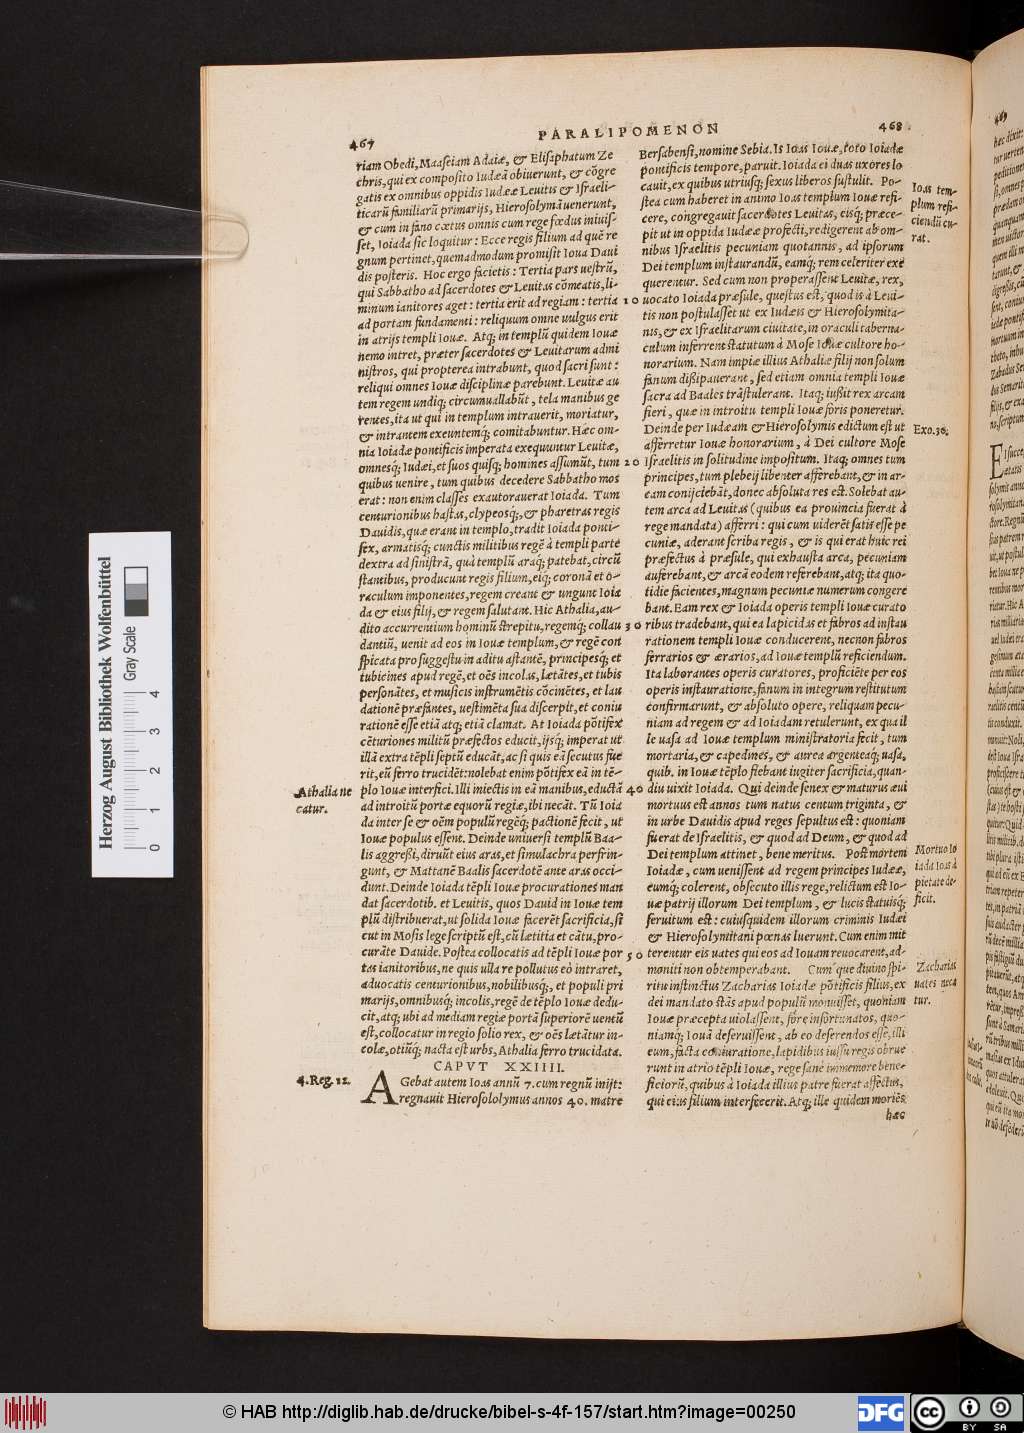 467
PARALIPOMENON
468
riam Obedi, Maaseiam Adaiæ, & Elisaphatum Ze
chris, qui ex composito Iudæā obiuerunt, & cōgre
gatis ex omnibus oppidis Iudææ Leuitis & Israeli-
ticarū familiarū primarijs, Hierosolymā uenerunt,
& cum in fano cœtus omnis cum rege fœdus iniuis-
set, Ioiada sic loquitur: Ecce regis filium ad quē re
gnum pertinet, quemadmodum promisit Ioua Daui
dis posteris. Hoc ergo facietis: Tertia pars uestrū,
qui Sabbatho ad sacerdotes & Leuitas cōmeatis, li-
minum ianitores aget: tertia erit ad regiam: tertia
ad portam fundamenti: reliquum omne uulgus erit
in atrijs templi Iouæ. Atq; in templū quidem Iouæ
nemo intret, præter sacerdotes & Leuitarum admi
nistros, qui propterea intrabunt, quod sacri sunt:
reliqui omnes Iouæ disciplinæ parebunt. Leuitæ au
tem regem undiq; circumuallabūt, tela manibus ge
rentes, ita ut qui in templum intrauerit, moriatur,
& intrantem exeuntemq; comitabuntur. Hæc om-
nia Ioiadæ pontificis imperata exequuntur Leuitæ,
omnesq; Iudæi, et suos quisq; homines assumūt, tum
quibus uenire, tum quibus decedere Sabbatho mos
erat: non enim classes exautorauerat Ioiada. Tum
centurionibus hastas, clypeosq;, & pharetras regis
Dauidis, quæ erant in templo, tradit Ioiada ponti-
fex, armatisq; cunctis militibus regē à templi parte
dextra ad sinistrā, quà templū araq; patebat, circū
stantibus, producunt regis filium, eiq; coronā et o-
raculum imponentes, regem creant & ungunt Ioia
da & eius filij, & regem salutant. Hic Athalia, au-
dito accurrentium hominū strepitu, regemq; collau
dantiū, uenit ad eos in Iouæ templum, & regē con
spicata pro suggestu in aditu astantē, principesq; et
tubicines apud regē, et oēs incolas, lætātes, et tubis
personātes, et musicis instrumētis cōcinētes, et lau
dationē præfantes, uestimēta sua discerpit, et coniu
rationē esse etiā atq; etiā clamat. At Ioiada pōtifex
cēturiones militū præfectos educit, ijsq; imperat ut
illā extra tēpli septū educāt, ac si quis eā secutus fue
rit, eū ferro trucidēt: nolebat enim pōtifex eā in tē-
plo Iouæ interfici. Illi iniectis in eā manibus, eductā
ad introitū portæ equorū regiæ, ibi necāt. Tū Ioia
da inter se & oēm populū regēq; pactionē fecit, ut
Iouæ populus essent. Deinde uniuersi templū Baa-
lis aggreßi, diruūt eius aras, et simulachra perfrin-
gunt, & Mattanē Baalis sacerdotē ante aras occi-
dunt. Deinde Ioiada tēpli Iouæ procurationes man
dat sacerdotib. et Leuitis, quos Dauid in Iouæ tem
plū distribuerat, ut solida Iouæ facerēt sacrificia, si
cut in Mosis lege scriptū est, cū lætitia et cātu, pro-
curāte Dauide. Postea collocatis ad tēpli Iouæ por
tas ianitoribus, ne quis ulla re pollutus eò intraret,
aduocatis centurionibus, nobilibusq;, et populi pri
marijs, omnibusq; incolis, regē de tēplo Iouæ dedu-
cit, atq; ubi ad mediam regiæ portā superiorē uentū
est, collocatur in regio solio rex, & oēs lætātur in-
colæ, otiūq; nacta est urbs, Athalia ferro trucidata.
CAPVT XXIIII.
AGebat autem Ioas annū 7. cum regnū inijt:
regnauit Hierosololymus annos 40. matre
Athalia ne
catur.
4. Reg. 12.
10
20
30
40
50
Bersabensi, nomine Sebia. Is Ioas Iouæ, toto Ioiadæ
pontificis tempore, paruit. Ioiada ei duas uxores lo
cauit, ex quibus utriusq; sexus liberos sustulit. Po-
stea cum haberet in animo Ioas templum Iouæ refi-
cere, congregauit sacerdotes Leuitas, eisq; præce-
pit ut in oppida Iudææ profecti, redigerent ab om-
nibus Israelitis pecuniam quotannis, ad ipsorum
Dei templum instaurandū, eamq; rem celeriter exe
querentur. Sed cum non properassent Leuitæ, rex,
uocato Ioiada præsule, questus est, quod is à Leui-
tis non postulasset ut ex Iudæis & Hierosolymita-
nis, & ex Israelitarum ciuitate, in oraculi taberna-
culum inferrent statutum à Mose Iouæ cultore ho-
norarium. Nam impiæ illius Athaliæ filij non solum
fanum dißipauerant, sed etiam omnia templi Iouæ
sacra ad Baales trāstulerant. Itaq; iußit rex arcam
fieri, quæ in introitu templi Iouæ foris poneretur.
Deinde per Iudæam & Hierosolymis edictum est ut
afferretur Iouæ honorarium, à Dei cultore Mose
Israelitis in solitudine impositum. Itaq; omnes tum
principes, tum plebeij libenter afferebant, & in ar-
cam conijciebāt, donec absoluta res est. Solebat au-
tem arca ad Leuitas (quibus ea prouincia fuerat à
rege mandata) afferri: qui cum uiderēt satis esse pe
cuniæ, aderant scriba regis, & is qui erat huic rei
præfectus à præsule, qui exhausta arca, pecuniam
auferebant, & arcā eodem referebant, atq; ita quo-
tidie facientes, magnum pecuniæ numerum congere
bant. Eam rex & Ioiada operis templi Iouæ curato
ribus tradebant, qui ea lapicidas et fabros ad instau
rationem templi Iouæ conducerent, necnon fabros
ferrarios & ærarios, ad Iouæ templū reficiendum.
Ita laborantes operis curatores, proficiēte per eos
operis instauratione, fanum in integrum restitutum
confirmarunt, & absoluto opere, reliquam pecu-
niam ad regem & ad Ioiadam retulerunt, ex qua il
le uasa ad Iouæ templum ministratoria fecit, tum
mortaria, & capedines, & aurea argenteaq; uasa,
quib. in Iouæ tēplo fiebant iugiter sacrificia, quan-
diu uixit Ioiada. Qui deinde senex & maturus æui
mortuus est annos tum natus centum triginta, &
in urbe Dauidis apud reges sepultus est: quoniam
fuerat de Israelitis, & quod ad Deum, & quod ad
Dei templum attinet, bene meritus. Post mortem
Ioiadæ, cum uenissent ad regem principes Iudææ,
eumq; colerent, obsecuto illis rege, relictum est Io-
uæ patrij illorum Dei templum, & lucis statuisq;
seruitum est: cuiusquidem illorum criminis Iudæi
& Hierosolymitani pœnas luerunt. Cum enim mit
terentur eis uates qui eos ad Iouam reuocarent, ad-
moniti non obtemperabant. Cum que diuino spi-
ritu instinctus Zacharias Ioiadæ pōtificis filius, ex
dei mandato stās apud populū monuisset, quoniam
Iouæ præcepta uiolassent, fore infortunatos, quo-
niamq; Iouā deseruissent, ab eo deserendos esse, illi
eum, facta coniuratione, lapidibus iussu regis obrue
runt in atrio tēpli Iouæ, rege sanè immemore bene-
ficiorū, quibus à Ioiada illius patre fuerat affectus,
qui eius filium interfecerit. Atq; ille quidem moriēs
hæc
Ioas tem-
plum refi-
ciendū cu-
rat.
Exo. 30.
Mortuo Io
iada Ioas à
pietate de-
ficit.
Zacharias
uates neca
tur.
469
Herzog August Bibliothek Wolfenbüttel
Gray Scale
0 1 2 3 4
© HAB http://diglib.hab.de/drucke/bibel-s-4f-157/start.htm?image=00250
DFG
cc
BY SA